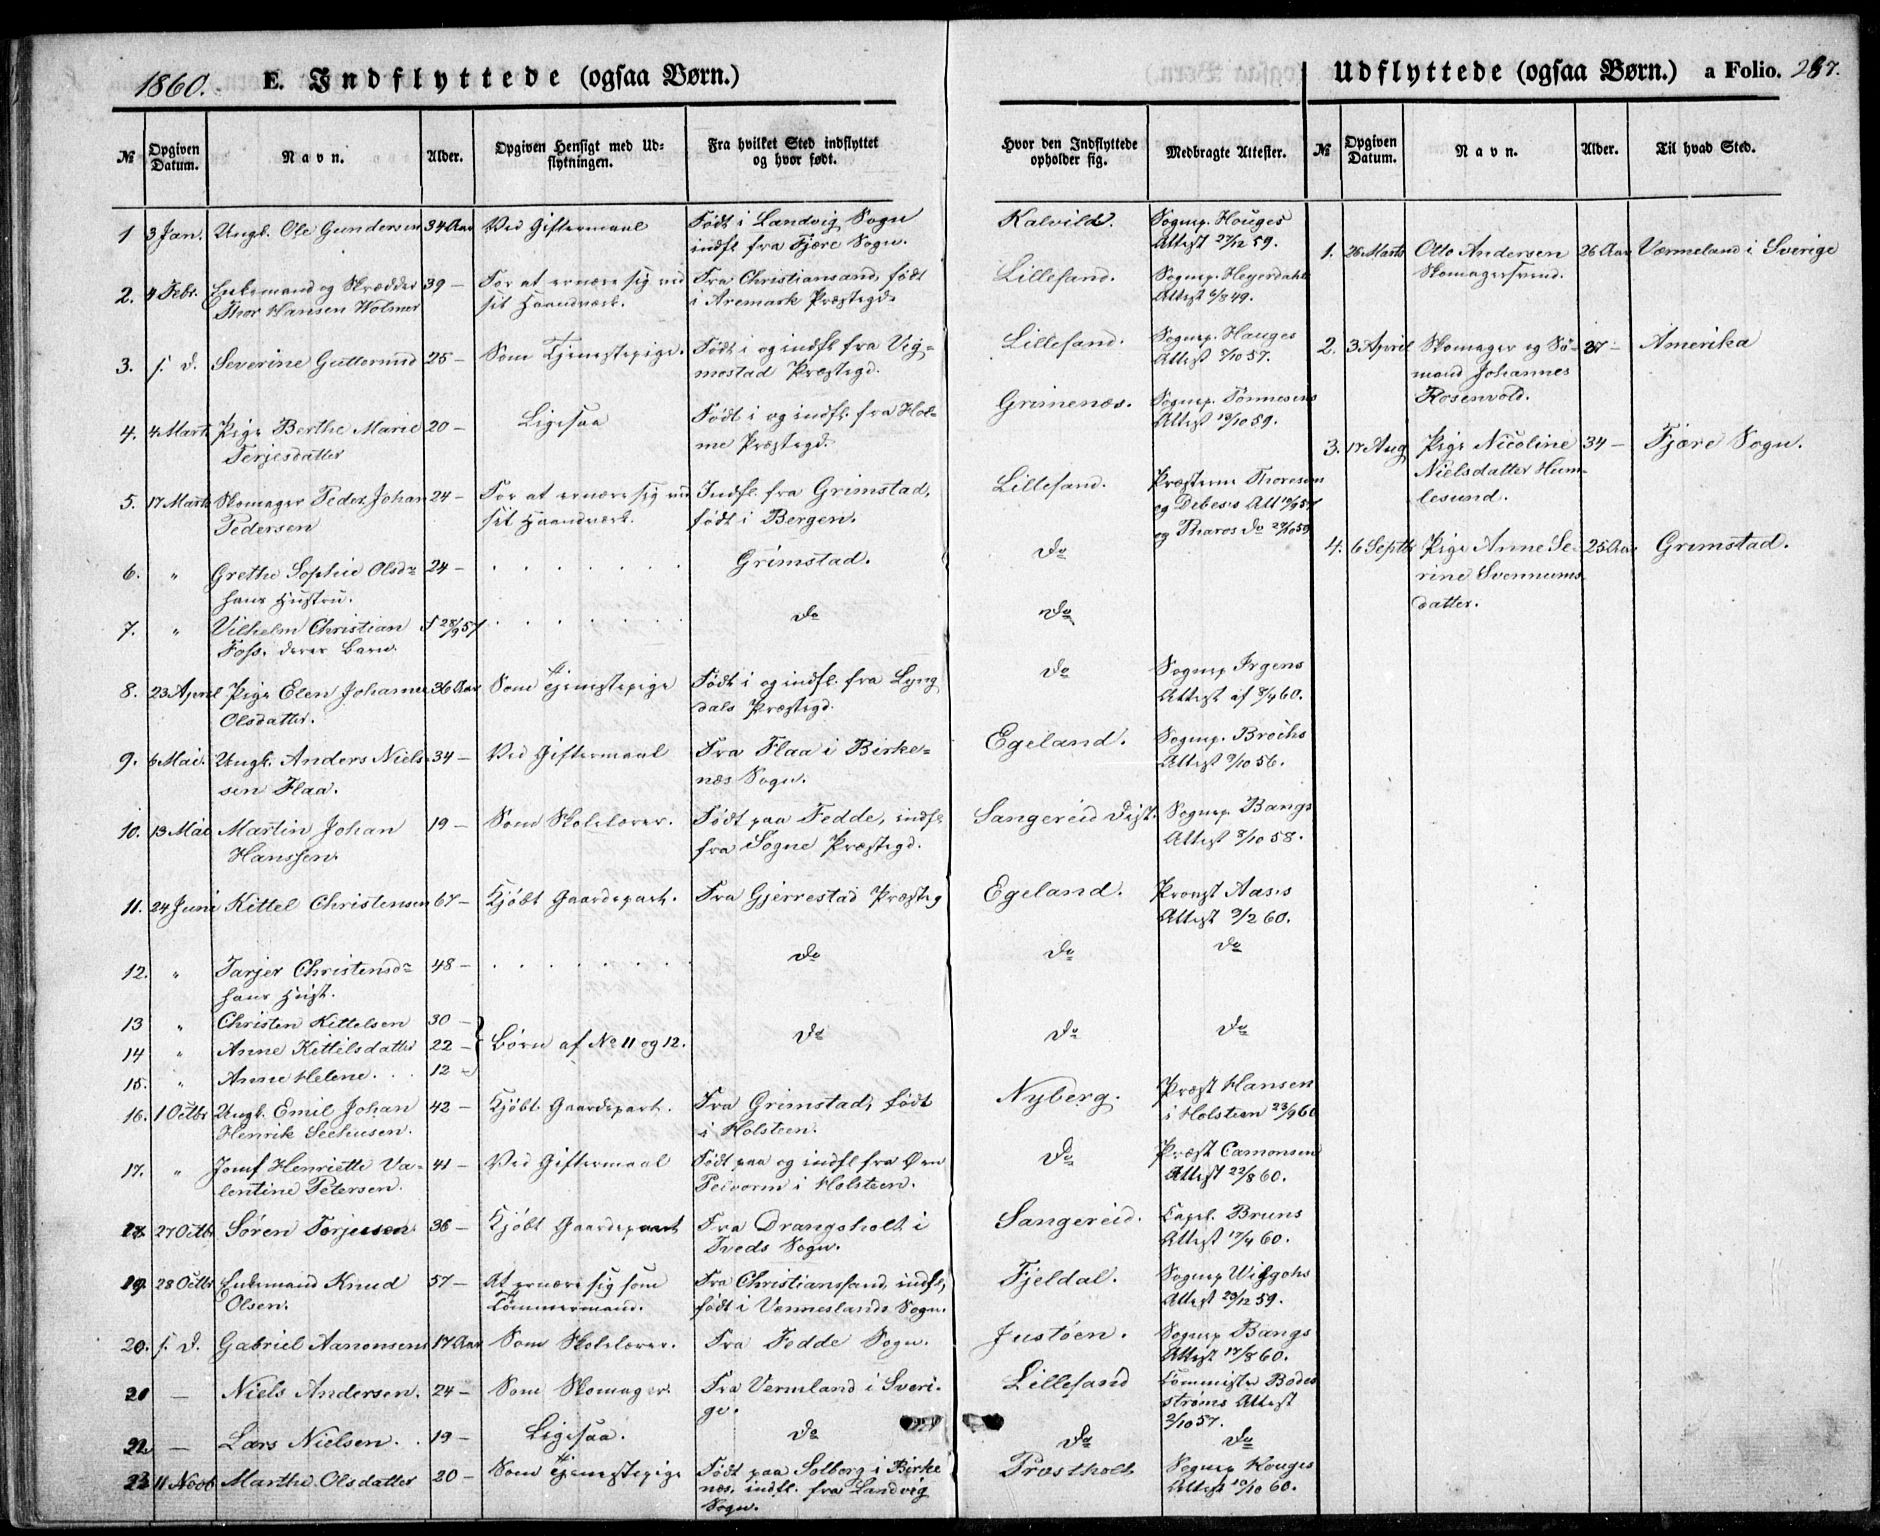 1860. E. Indflyttede (ogsaa Børn.)
Udflyttede (ogsaa Børn.) a Folio. 287.
№ Opgiven Datum. Navn. Alder. Opgiven Hensigt med Udflytningen. Fra hvilket Sted indflyttet og hvor født. Hvor den Indflyttede opholder sig. Medbragte Attester.
№ Opgiven Datum. Navn. Alder. Til hvad Sted.
1 3 Jan. Ungk. Ole Gundersen 34 Aar Ved Giftermaal Født i Landvig Sogn Kalvild. Sognep. Houges
indfl fra Fjære Sogn. Attest 27/12 59.
2. 4 Febr. Enkemand og Skrædder 39 — For at ernære sig ved Fra Christiansand, født Lillesand. Sognep. Heyerdahls
Thor Hansen Holmer sit Haandværk. i Aremark Præstegd. Attest 6/8 49.
3. s. D. Severine Guttormsd 25 — Som Tjenestepige. Født i og indfl fra Vig- Lillesand. Sognep. Hauges
mostad Præstegd. Attest 7/10 57.
4. 4 Marts Pige Berthe Marie 20 — Ligesaa Født i og indfl. fra Hol- Grimenæs. Sognep. Tönnesens
Terjesdatter me Præstegd. Attest 13/10 59.
5. 17 Marts Skomager Peder Johan 24 — For at ernære sig ved Indfl. fra Grimstad, Lillesand. Præsterne Thoresen
Pedersen sit Haandværk. født i Bergen. og Debes's Att 19/9 57
og Tharos Do 27/10 59
6. " Grethe Sophie Olsdr 24 — Grimstad. Do
hans Hustru.
7. " Vilhelm Christian f 28/9 57 Do Do
Foss. deres Barn.
8. 23 April Pige Elen Johanne 36 Aar Som Tjenestepige Født i og indfl. fra Lyng Do Sognep Irgens
Olsdatter. dals Præstegd. Attest af 8/4 60.
9. 6 Mai. Ungk. Anders Niels- 34 — Ved Giftermaal Fra Flaa i Birke- Egeland. Sognep. Brochs
sen Flaa. næs Sogn. Attest 9/10 56.
10. 13 Mai Martin Johan 19 — Som Skolelærer. Født paa Fedde, indfl. Sangereid Dist. Sognep. Bangs
Hanssen. fra Søgne Præstegd. Attest 8/10 58.
11. 24 Juni Kittel Christensen 67 — Kjöbt Gaardepart. Fra Gjerrestad Præsteg Egeland. Provst Aas's
Attest 9/2 60.
12. " Tarjer Christensdr 48 — Do Do Do
hans Hust.
13 " Christen Kittelsen 30 —
14 " Anne Kittilsdatter 22 — Børn af No 11 og 12. Do Do Do
15. " Anne Helene. 12 —
16. 1 Octbr Ungk. Emil Johan 42 — Kjöbt Gaardepart. Fra Grimstad, født Nyberg. Præst Hansen
Henrik Seehusen. i Holsteen. i Holsteen 23/9 60
17. " Jomf Henriette Va- 41 — Ved Giftermaal Født paa og indfl fra Øen Do Præst Camonsen
lentine Petersen. Pelvorm i Holsteen. Attest 22/8 60.
18 27 Octbr Søren Torjusen 36 — Kjöbt Gaardepaart Fra Drangsholt i Sangereid. Capel. Bruns
Tveds Sogn. Attest 17/4 60.
19. 28 Octbr Enkemand Knud 57 — At ernære sig som Fra Christianssand indfl, Fjeldal. Sognep
Olsen. Tømmermand. født i Venneslands Sogn. Attest 29/12 59.
20. s. D. Gabriel Aanonsens 17 Aar Som Skolelærer. Fra Fedde Sogn. Justøen. Sognep Bangs
Attest 17/8 60.
21 — Niels Andersen. 24 — Som Skomager. Fra Vermland i Sveri- Lillesand Commister Bodes
ge. strøms Attest
2/10 57.
22. — Lars Nielsen. 19 — Ligesaa. Do Do Do
23 11 Novb Marthe Olsdatter 20 — Som Tjenestepige Født paa Solberg i Birke Præstholt Sognep Houges
næs, indfl. fra Landvig Attest 10/10 60.
Sogn.
1. 26 Marts Otto Andersen 26 Aar Værmeland i Sverige
Skomagersvend.
2. 3 April Skomager og Sø- 37 — Amerika
mand Johannes
Rosenvold.
3. 17 Aug Pige Nicoline 34 — Fjære Sogn.
Nielsdatter Hum-
lesund.
4. 6 Septbr Pige Anne Se- 25 Aar Grimstad.
rine Svennums
datter.